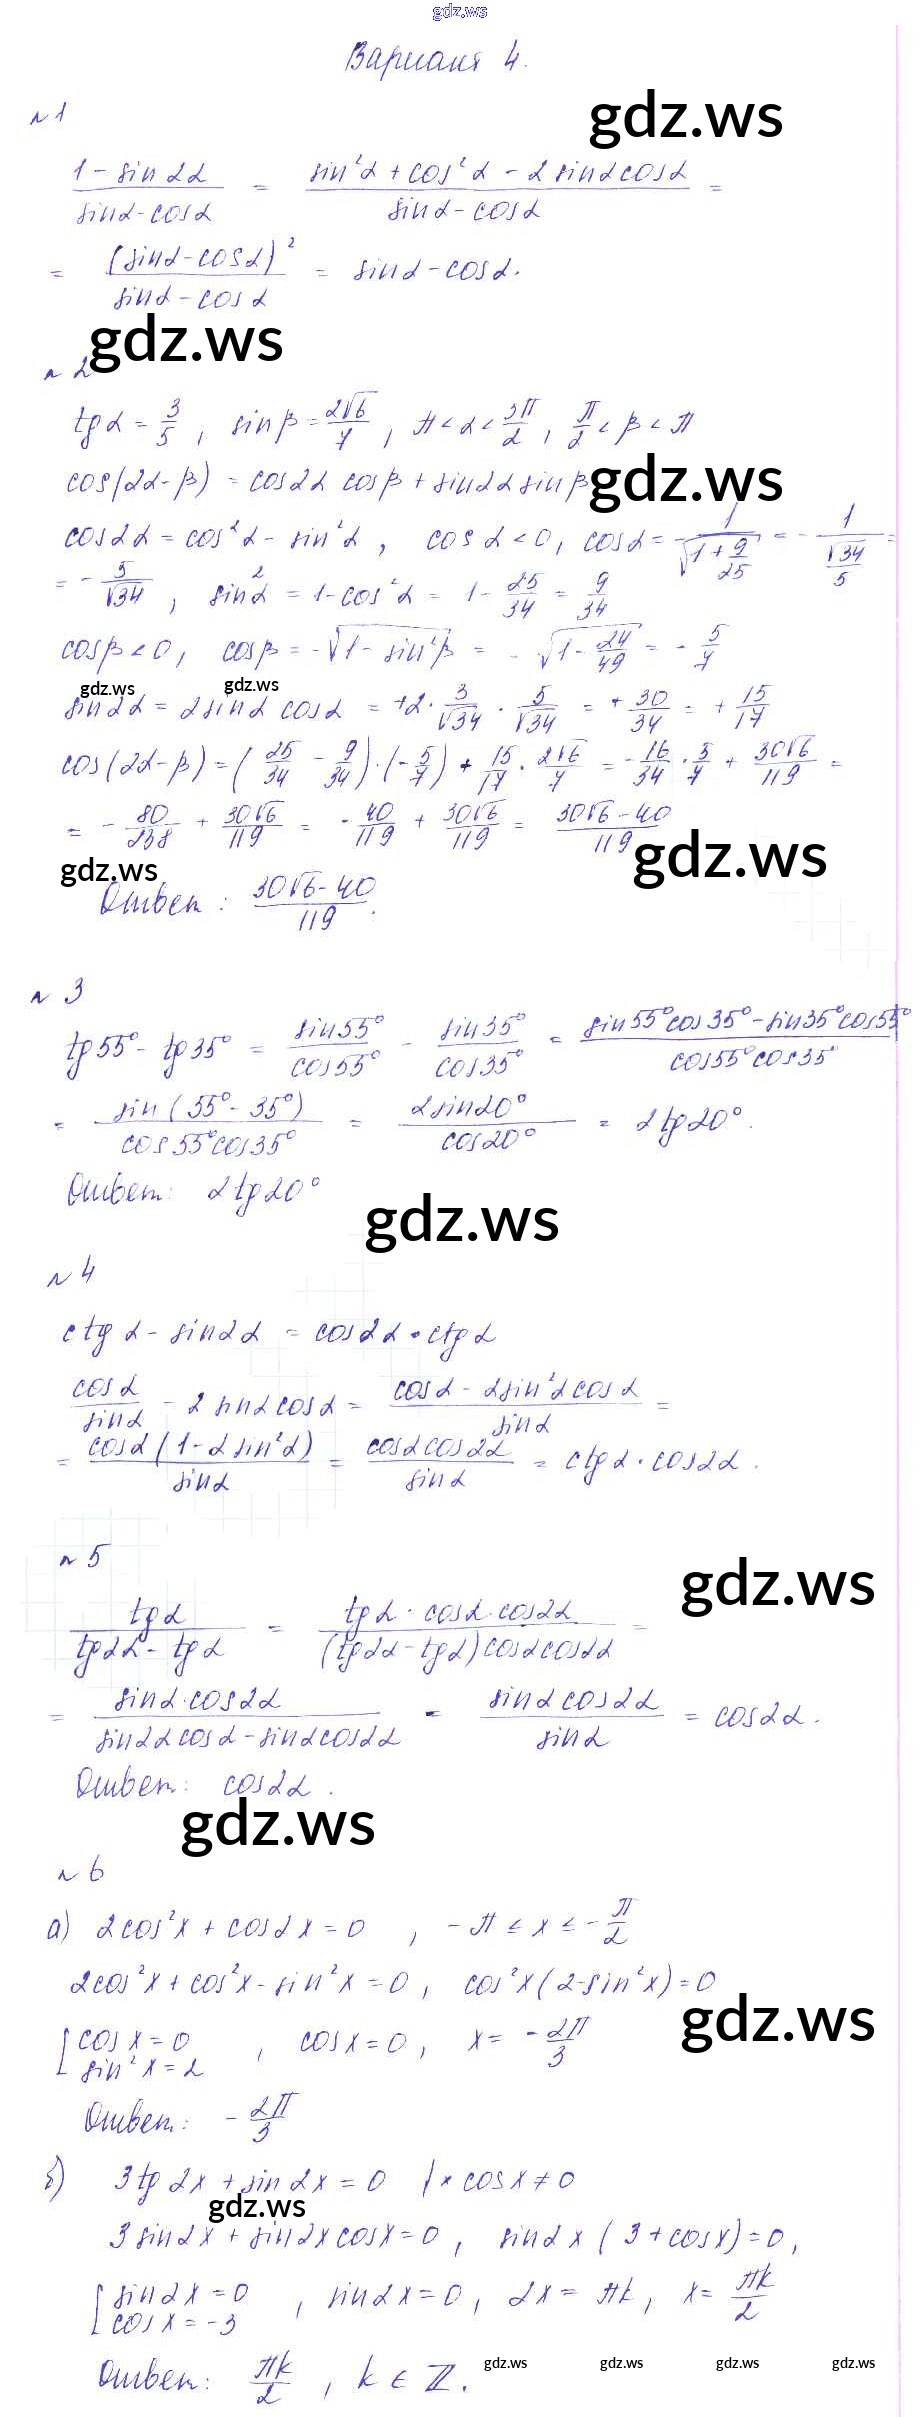 gdz.ws
Вариант 4.
№1
gdz.ws
(1 - sin 2α)/(sinα - cosα) = (sin²α + cos²α - 2 sinα cosα)/(sinα - cosα) =
= (sinα - cosα)²/(sinα - cosα) = sinα - cosα.
gdz.ws
№2
tgα = 3/5, sinβ = 2√6/7, π < α < 3π/2, π/2 < β < π
gdz.ws
cos(2α - β) = cos2α cosβ + sin2α sinβ
cos2α = cos²α - sin²α, cosα < 0, cosα = -1/√(1 + 9/25) = -1/(√34/5) =
= -5/√34, sin²α = 1 - cos²α = 1 - 25/34 = 9/34
cosβ < 0, cosβ = -√(1 - sin²β) = -√(1 - 24/49) = -5/7
gdz.ws gdz.ws
sin2α = 2 sinα cosα = +2 · 3/√34 · 5/√34 = +30/34 = +15/17
cos(2α - β) = (25/34 - 9/34) · (-5/7) + 15/17 · 2√6/7 = -16/34 · 5/7 + 30√6/119 =
= -80/238 + 30√6/119 = -40/119 + 30√6/119 = (30√6 - 40)/119
gdz.ws gdz.ws
Ответ: (30√6 - 40)/119.
№3
tg55° - tg35° = sin55°/cos55° - sin35°/cos35° = (sin55°cos35° - sin35°cos55°)/(cos55°cos35°)
= sin(55° - 35°)/(cos55°cos35°) = 2sin20°/cos20° = 2tg20°.
Ответ: 2tg20°
gdz.ws
№4
ctgα - sin2α = cos2α · ctgα
cosα/sinα - 2 sinα cosα = (cosα - 2sin²α cosα)/sinα =
= cosα(1 - 2sin²α)/sinα = cosα cos2α/sinα = ctgα · cos2α.
№5
gdz.ws
tgα/(tg2α - tgα) = (tgα · cosα · cos2α)/((tg2α - tgα)cosα cos2α) =
= (sinα · cos2α)/(sin2α cosα - sinα cos2α) = (sinα cos2α)/sinα = cos2α.
Ответ: cos2α.
gdz.ws
№6
а) 2cos²x + cos2x = 0, -π ≤ x ≤ -π/2
2cos²x + cos²x - sin²x = 0, cos²x(2-sin²x) = 0
gdz.ws
[cos x = 0
sin²x = 2, cos x = 0, x = -2π/3
Ответ: -2π/3
б) 3tg 2x + sin 2x = 0 | × cos x ≠ 0
gdz.ws
3 sin2x + sin2x cosx = 0, sin2x (3 + cosx) = 0,
[sin2x = 0
cosx = -3, sin2x = 0, 2x = πk, x = πk/2
Ответ: πk/2, k ∈ Z.
gdz.ws gdz.ws gdz.ws gdz.ws